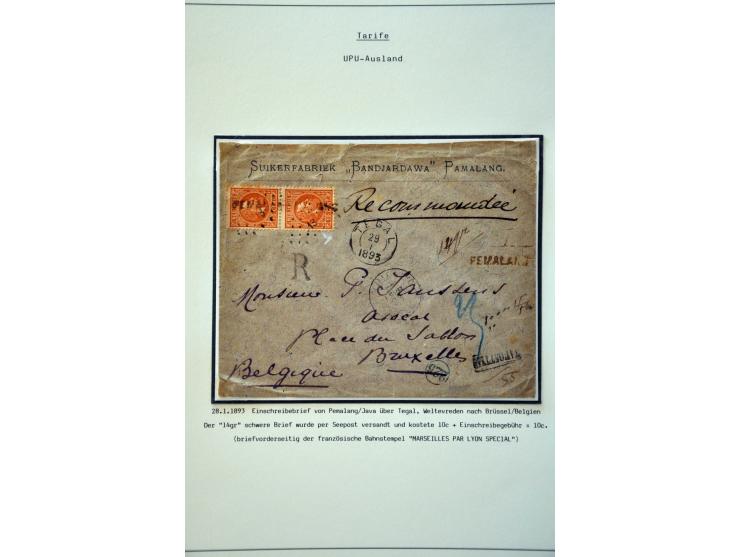 Tarife
UPU-Ausland
SUIKERFABRIEK „BANDJARDAWA" PAMALANG.
Recommandée
TEGAL
29
1
1893
PEMALANG
R
Monsieur P. Janssens
Avocat
Place du Sablon
Bruxelles
Belgique
28.1.1893 Einschreibebrief von Pemalang/Java über Tegal, Weltevreden nach Brüssel/Belgien
Der "14gr" schwere Brief wurde per Seepost versandt und kostete 10c + Einschreibegebühr = 10c.
(briefvorderseitig der französische Bahnstempel "MARSEILLES PAR LYON SPECIAL")